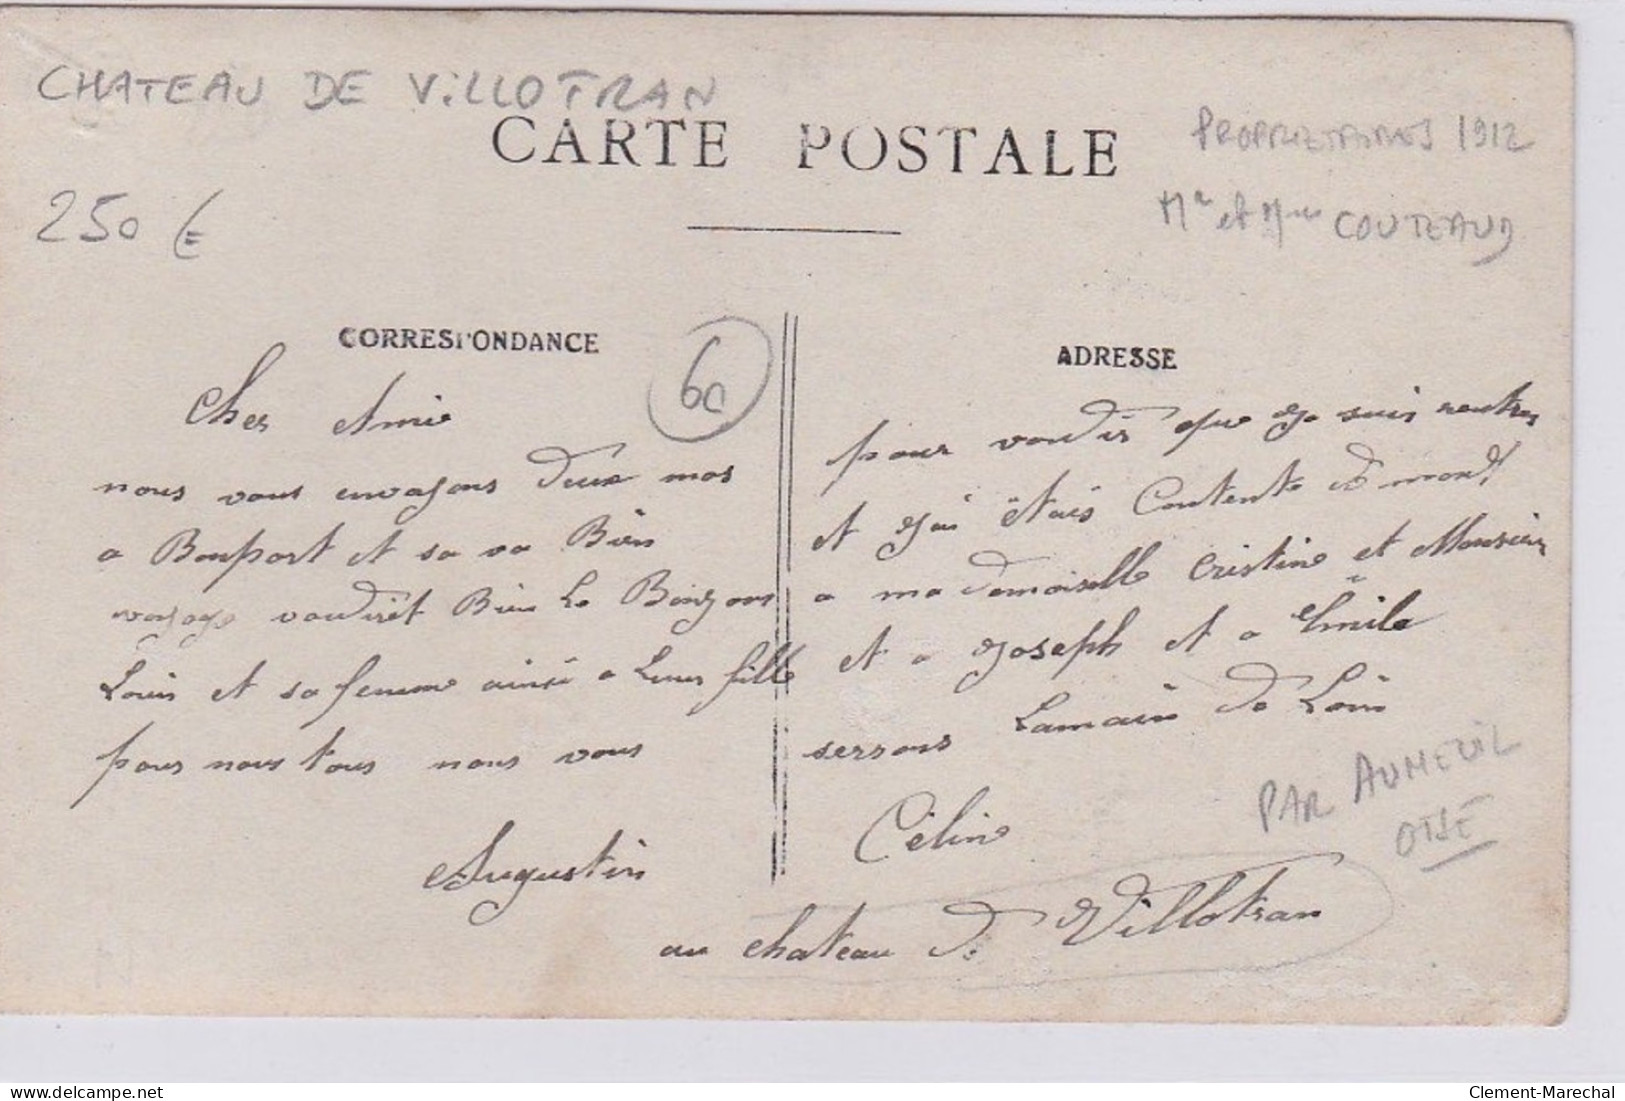 CHATEAU DE VILLOTRAN
CARTE POSTALE
PROPRIETAIRES 1912
Mr et Mme COUTEAUD
250 €
CORRESPONDANCE
60
ADRESSE
Cher Amie
nous vous envoyons deux mos
a Bonport et sa va Bien
voyage voudirèt Bien Le Bonjour
Louis et sa femme ainsi a Leur fille
pour nous tous nous vous
Augustin
pour vous dir que Je suis rentres
et J'ai étais Contente d
a ma demoiselle Cristine et Monsieur
et a Joseph et a Emile
serrons Lamain de Loin
Céline
au chateau de Villotran
PAR AUNEUIL
OISE
delcampe.net
Clement-Marechal